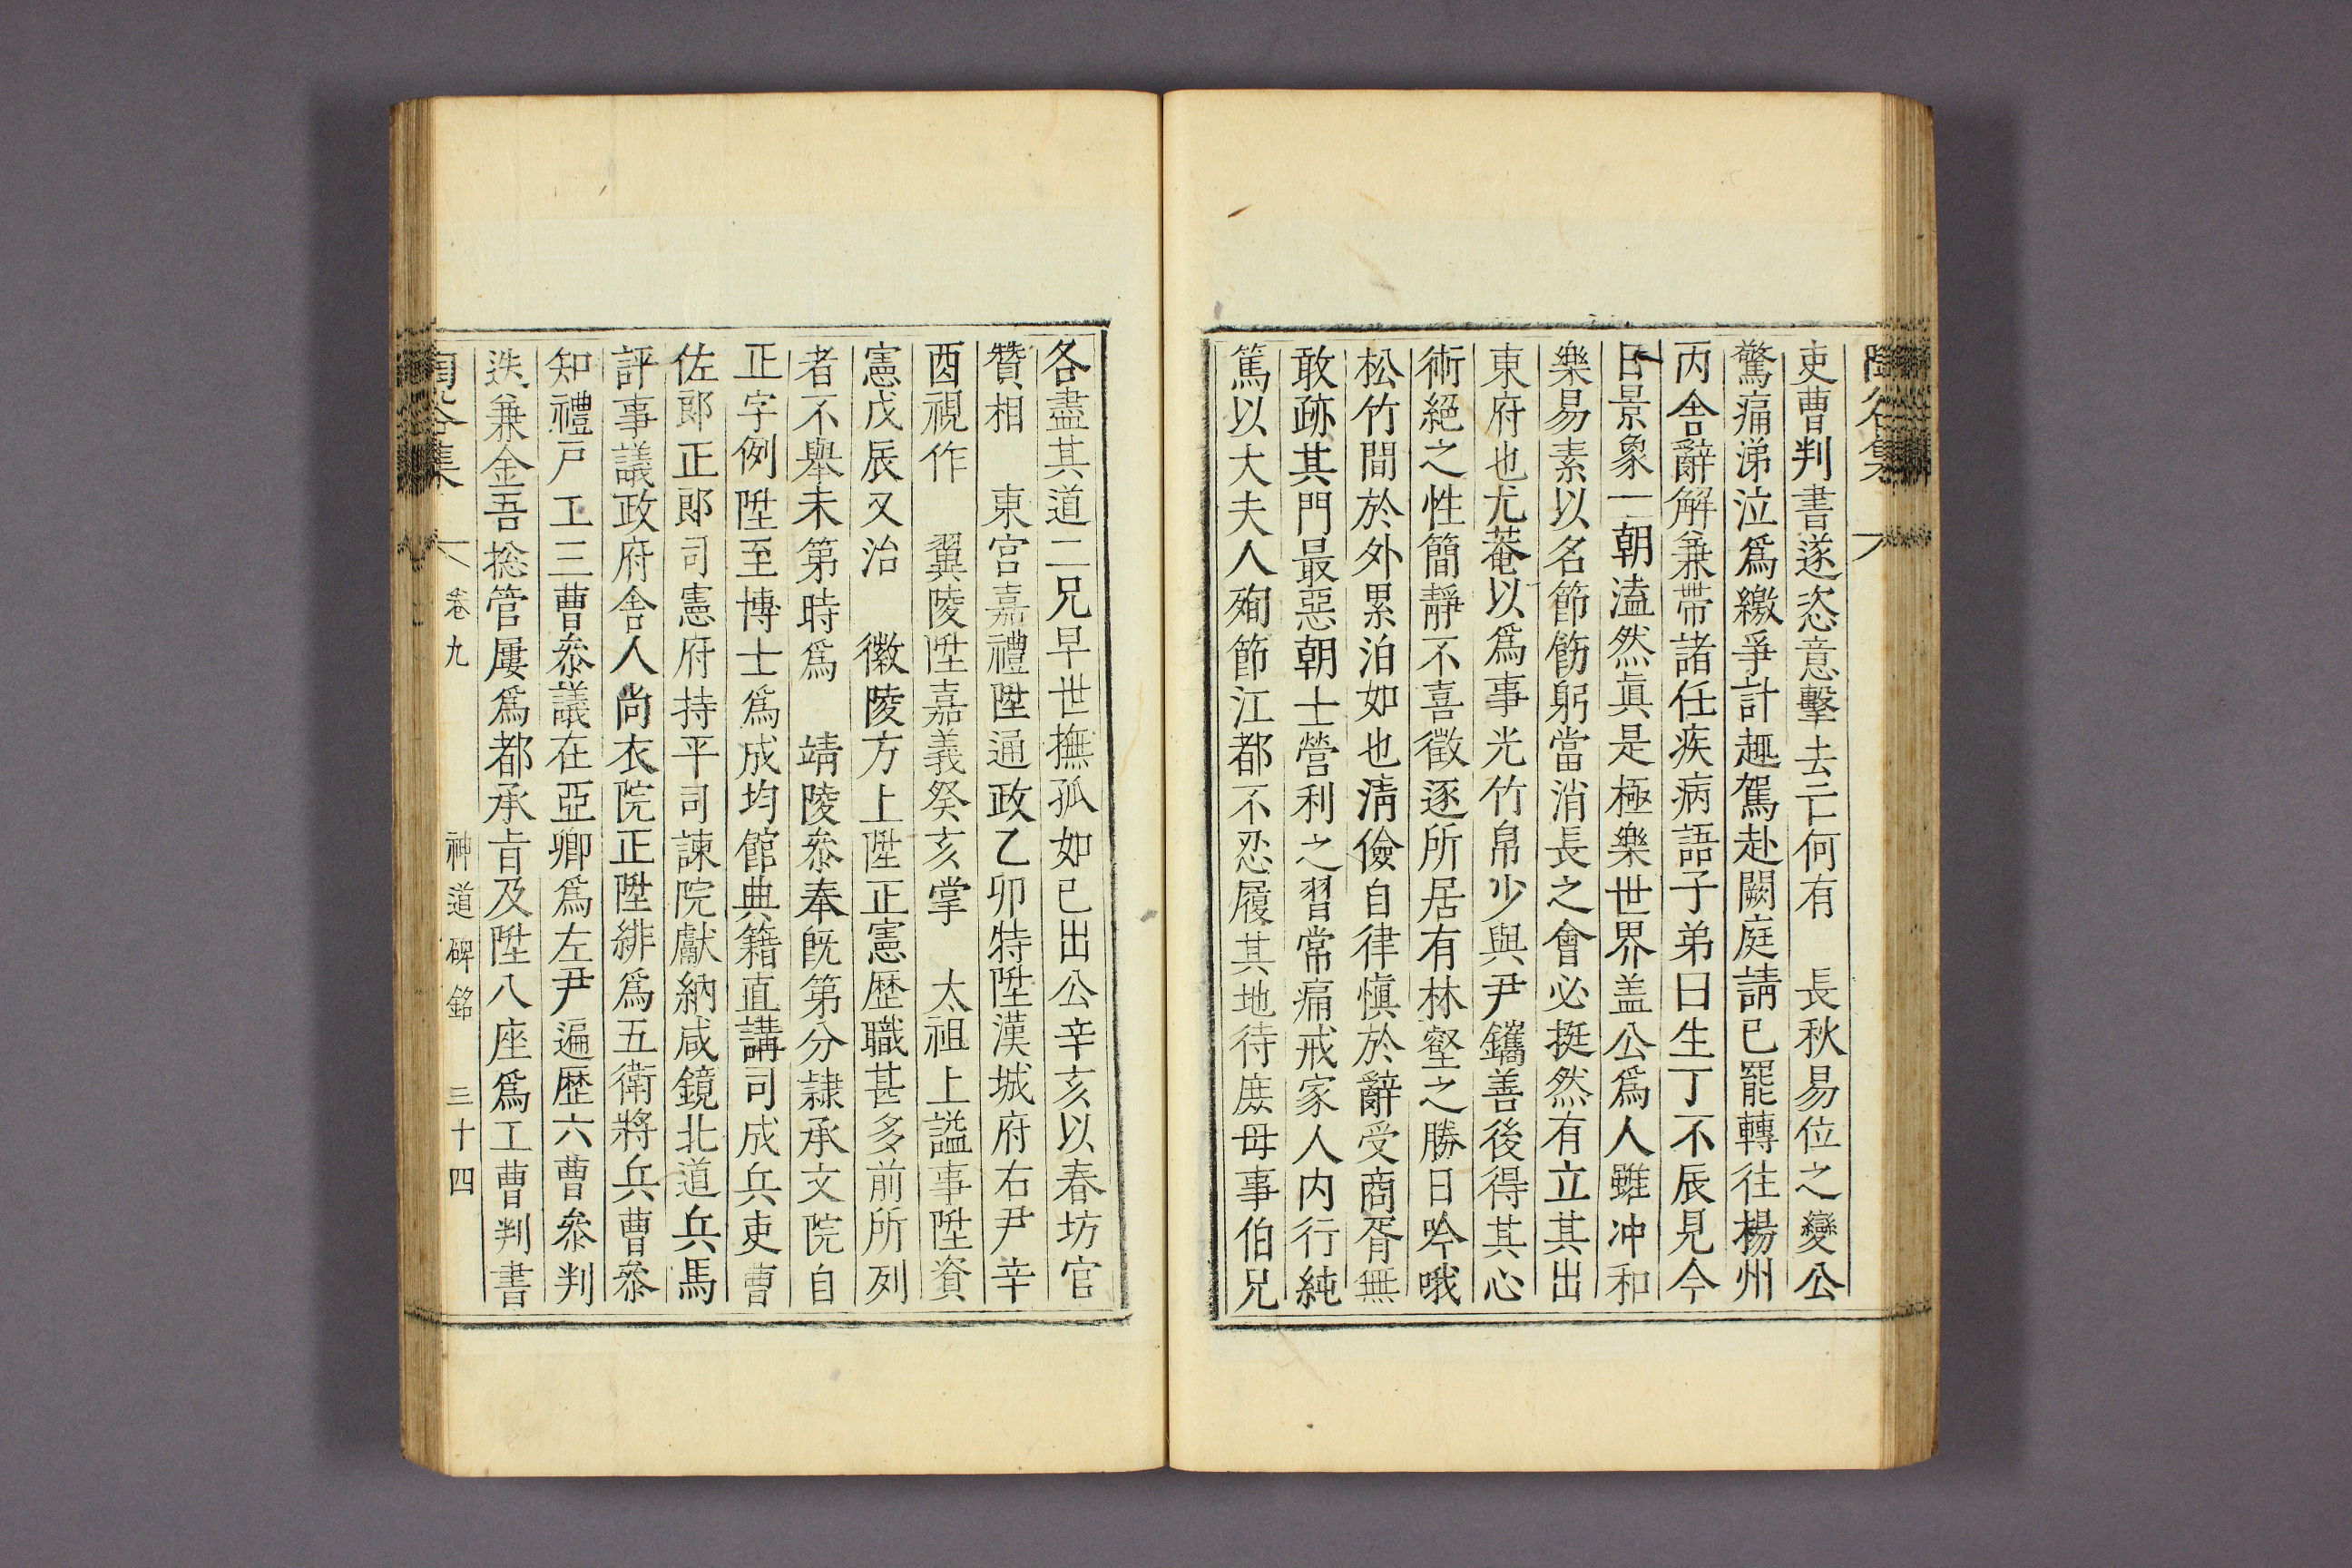 吏曹判書遂恣意擊去亡何有　長秋易位之變公
驚痛涕泣爲繳爭計趣駕赴闕庭請已罷轉往楊州
丙舍辭解兼帶諸任疾病語子弟曰生丁不辰見今
日景象一朝溘然眞是極樂世界盖公爲人雖冲和
樂易素以名節飭躬當消長之會必挺然有立其出
東府也尤菴以爲事光竹帛少與尹鑴善後得其心
術絕之性簡靜不喜徵逐所居有林壑之勝日吟哦
松竹間於外累泊如也淸儉自律愼於辭受商胥無
敢跡其門最惡朝士營利之習常痛戒家人内行純
篤以大夫人殉節江都不忍履其地待庶母事伯兄
各盡其道二兄早世撫孤如已出公辛亥以春坊官
贊相　東宮嘉禮陞通政乙卯特陞漢城府右尹辛
酉視作　翼陵陞嘉義癸亥掌　太祖上謚事陞資
憲戊辰又治　徽陵方上陞正憲歷職甚多前所列
者不舉未第時爲　靖陵叅奉旣第分隷承文院自
正字例陞至博士爲成均館典籍直講司成兵吏曹
佐郞正郞司憲府持平司諫院獻納咸鏡北道兵馬
評事議政府舍人尚衣院正陞緋爲五衛將兵曹叅
知禮戶工三曹叅議在亞卿爲左尹遍歷六曹叅判
迭兼金吾摠管屢爲都承旨及陞八座爲工曹判書
集　卷九　神道碑銘　三十四